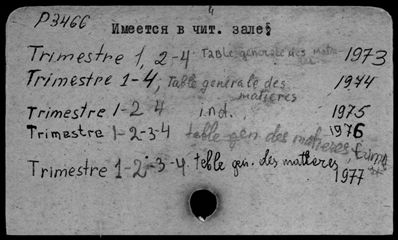 P3466
Имеется в чит. зале
Trimestre 1, 2-4 Table générale des matières 1973
Trimestre 1-4, Table générale des matières 1974
Trimestre 1-2 4 ind. 1975
Trimestre 1-2-3-4 table gen. des matieres, 1976
Trimestre 1-2-3-4. table gen. des matieres 1977